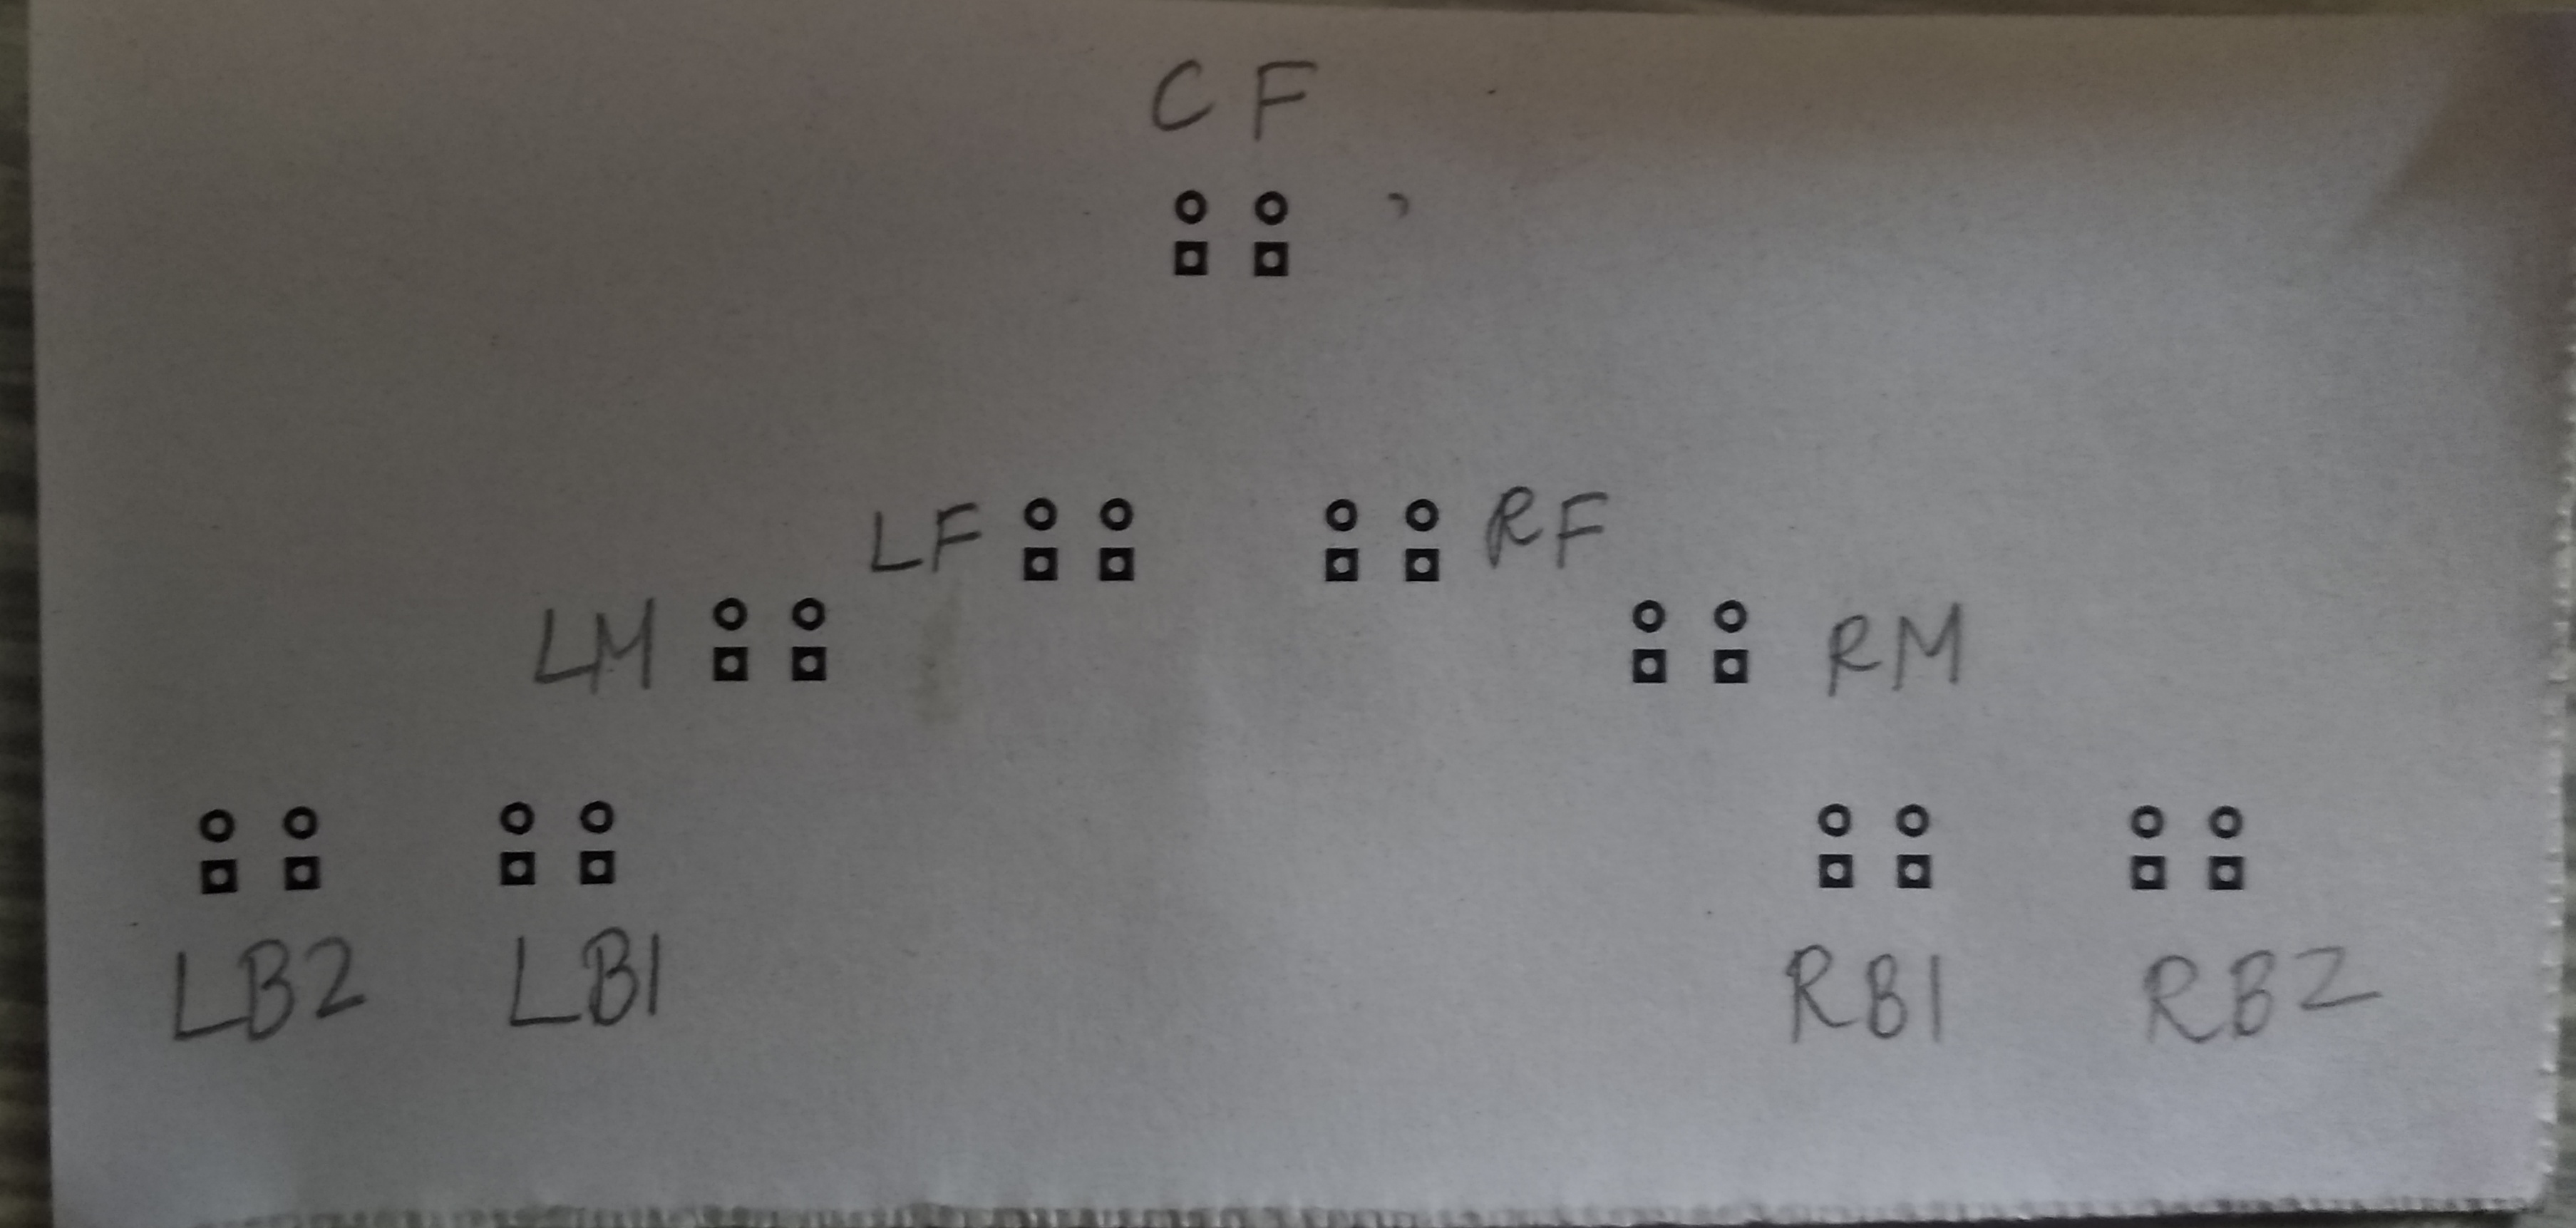 CF
LF RF
LM RM
LB2 LB1 RB1 RB2